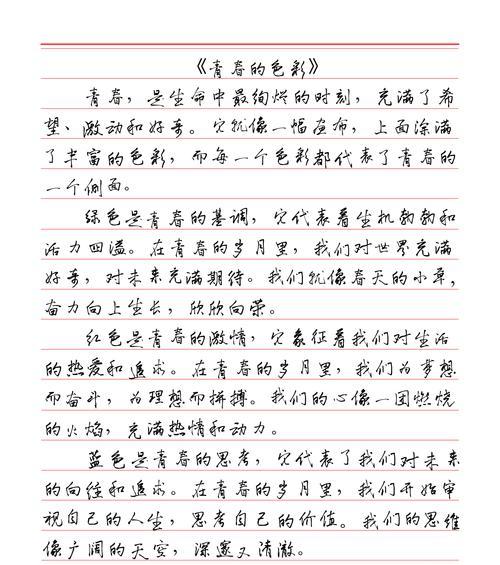 《青春的色彩》
青春，是生命中最绚烂的时刻，充满了希
望、激动和好奇。它就像一幅画布，上面涂满
了丰富的色彩，而每一个色彩都代表了青春的
一个侧面。
绿色是青春的基调，它代表着生机勃勃和
活力四溢。在青春的岁月里，我们对世界充满
好奇，对未来充满期待。我们就像春天的小草，
奋力向上生长，欣欣向荣。
红色是青春的激情，它象征着我们对生活
的热爱和追求。在青春的岁月里，我们为梦想
而奋斗，为理想而拼搏。我们的心像一团燃烧
的火焰，充满热情和动力。
蓝色是青春的思考，它代表了我们对未来
的向往和追求。在青春的岁月里，我们开始审
视自己的人生，思考自己的价值。我们的思维
像广阔的天空，深邃又清澈。